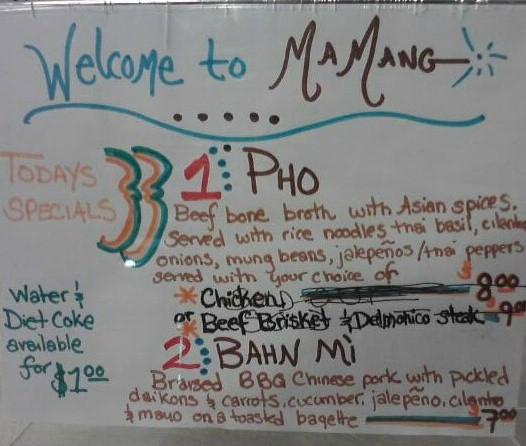 Welcome to MAMANG
TODAYS
SPECIALS
1 PHO
Beef bone broth with Asian spices.
Served with rice noodles, thai basil, cilantro
onions, mung beans, jalepeños/thai peppers
served with your choice of
* Chicken 8.00
or * Beef Brisket & Delmonico steak 9.00
Water &
Diet Coke
available
for $1.00
2 BAHN MÌ
Braised BBQ Chinese pork with pickled
daikons & carrots, cucumber, jalepeño, cilantro
& mayo on a toasted bagette 7.00